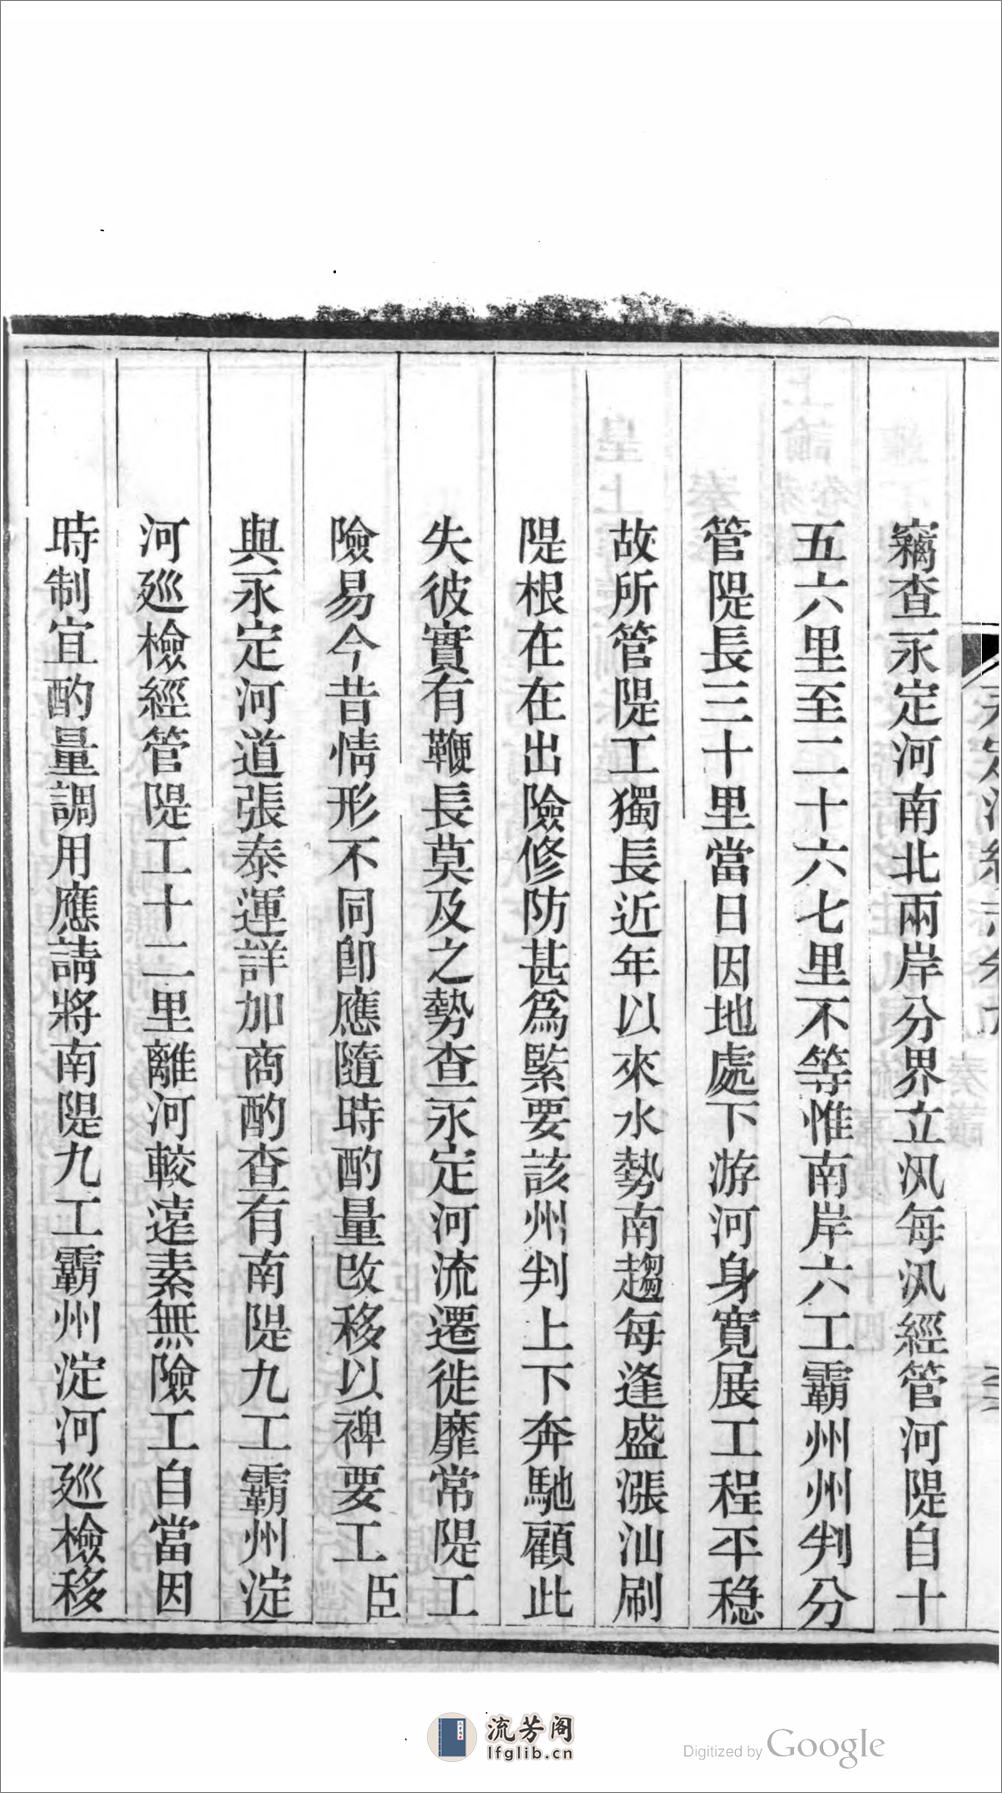 竊查永定河南北兩岸分界立汛每汛經管河隄自十
五六里至二十六七里不等惟南岸六工霸州州判分
管隄長三十里當日因地處下游河身寛展工程平穩
故所管隄工獨長近年以來水勢南趨每逢盛漲汕刷
隄根在在出險修防甚為緊要該州判上下奔馳顧此
失彼實有鞭長莫及之勢查永定河流遷徙靡常隄工
險易今昔情形不同卽應隨時酌量改移以裨要工臣
與永定河道張泰運詳加商酌查有南隄九工霸州淀
河廵檢經管隄工十二里離河較遠素無險工自當因
時制宜酌量調用應請將南隄九工霸州淀河廵檢移
流芳阁
lfglib.cn
Digitized by Google